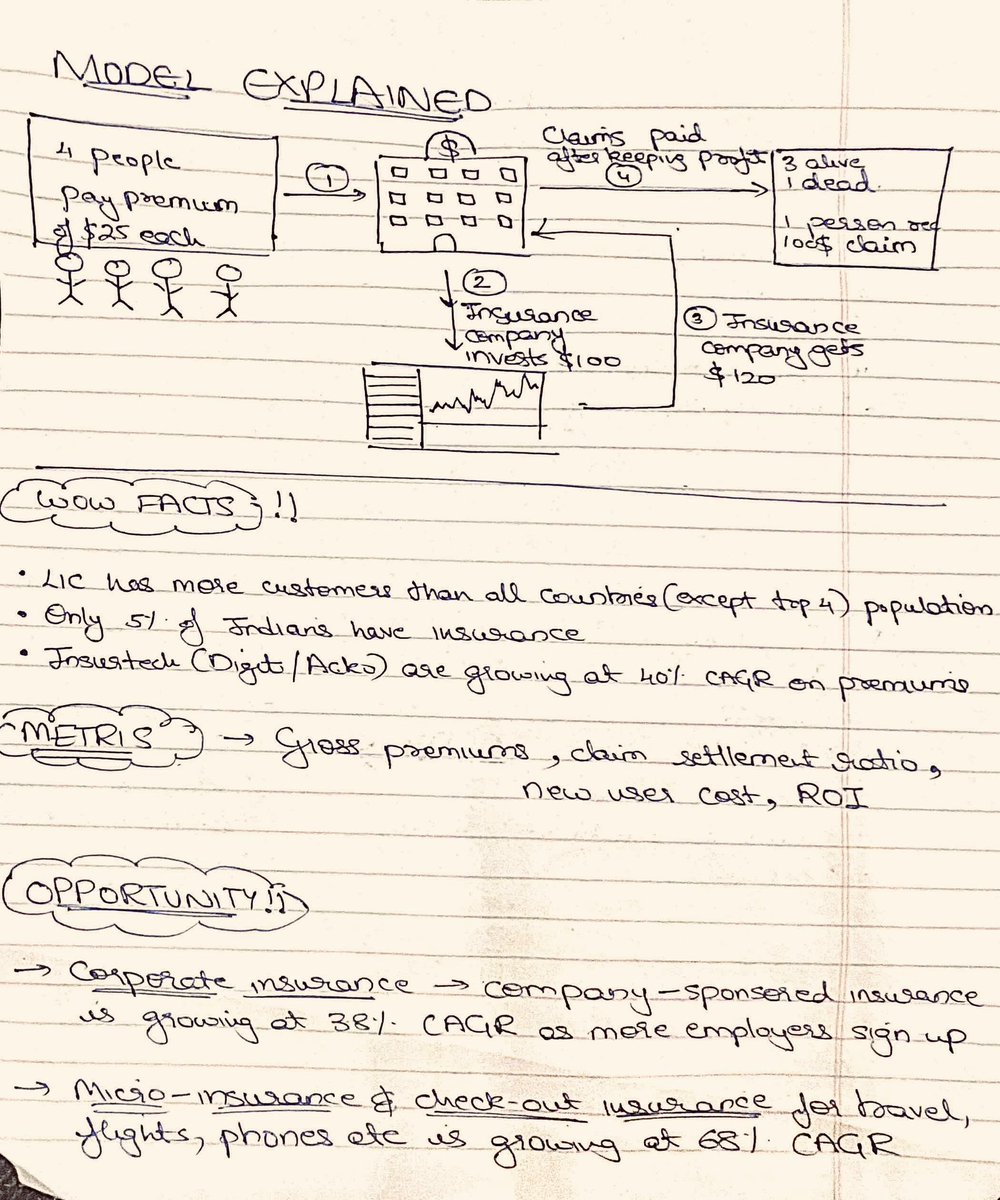 MODEL EXPLAINED
4 people
pay premium
of $25 each
1
$
Claims paid
after keeping profit
4
3 alive
1 dead
1 person rec
100$ claim
2
Insurance
company
invests $100
3 Insurance
company gets
$120
WOW FACTS !!
• LIC has more customers than all countries (except top 4) population
• Only 5% of Indians have insurance
• Insurtech (Digit/Acko) are growing at 40% CAGR on premiums
METRIS → Gross premiums, claim settlement ratio,
new user cost, ROI
OPPORTUNITY!!
→ Corporate insurance → company-sponsered insurance
is growing at 38% CAGR as more employers sign up
→ Micro-insurance & check-out insurance for travel,
flights, phones etc is growing at 68% CAGR